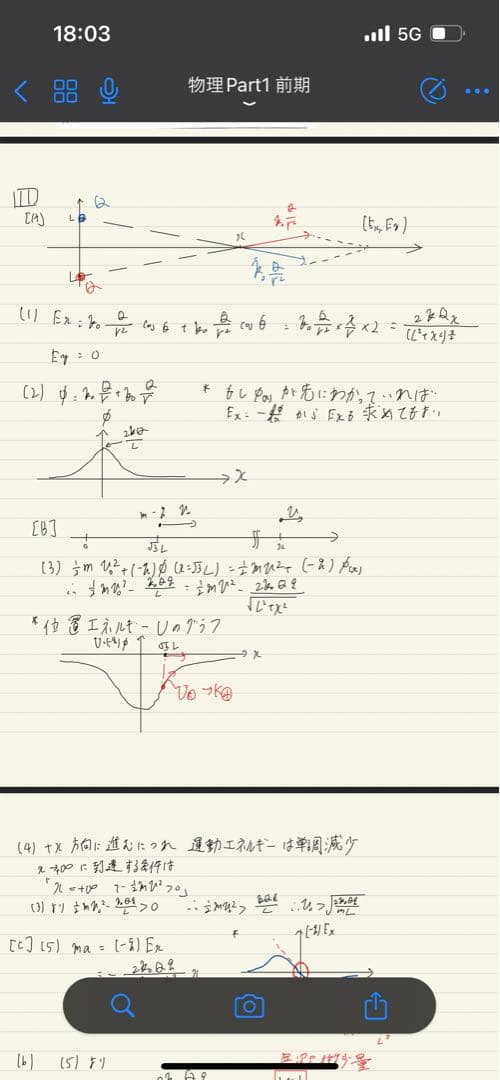 18:03
5G
物理Part1 前期
III
[A]
Q
L
x
k₀ Q/r²
(Ex, Ey)
L
Q
k₀ Q/r²
(1) Ex = k₀ Q/r² cosθ + k₀ Q/r² cosθ = k₀ Q/r² × x/r × 2 = 2kQx/(L²+x²)^(3/2)
Ey = 0
(2) φ = k₀ Q/r + k₀ Q/r
* もしφ(x)が先にわかっていれば
からExを求めてもよい
φ
2kQ/L
x
[B]
m -q v₀
0
√3L
x
(3) ½mv₀² + (-q)φ(x=√3L) = ½mv² + (-q)φ(x)
∴ ½mv₀² - k₀Qq/L = ½mv² - 2k₀Qq/√(L²+x²)
*位置エネルギーUのグラフ
U=(-q)φ
√3L
x
U⊕→K⊕
(4) +x 方向に進むにつれ 運動エネルギーは単調減少
x→∞ に到達する条件は
「x=+∞ で ½mv²>0」
(3)より ½mv₀² - k₀Qq/L > 0 ∴ ½mv₀² > k₀Qq/L ∴ v₀ > √(2k₀Qq/mL)
[C] (5) ma = (-q)Ex
* (-q)Ex
= - 2k₀Qq x
(6) (5)より